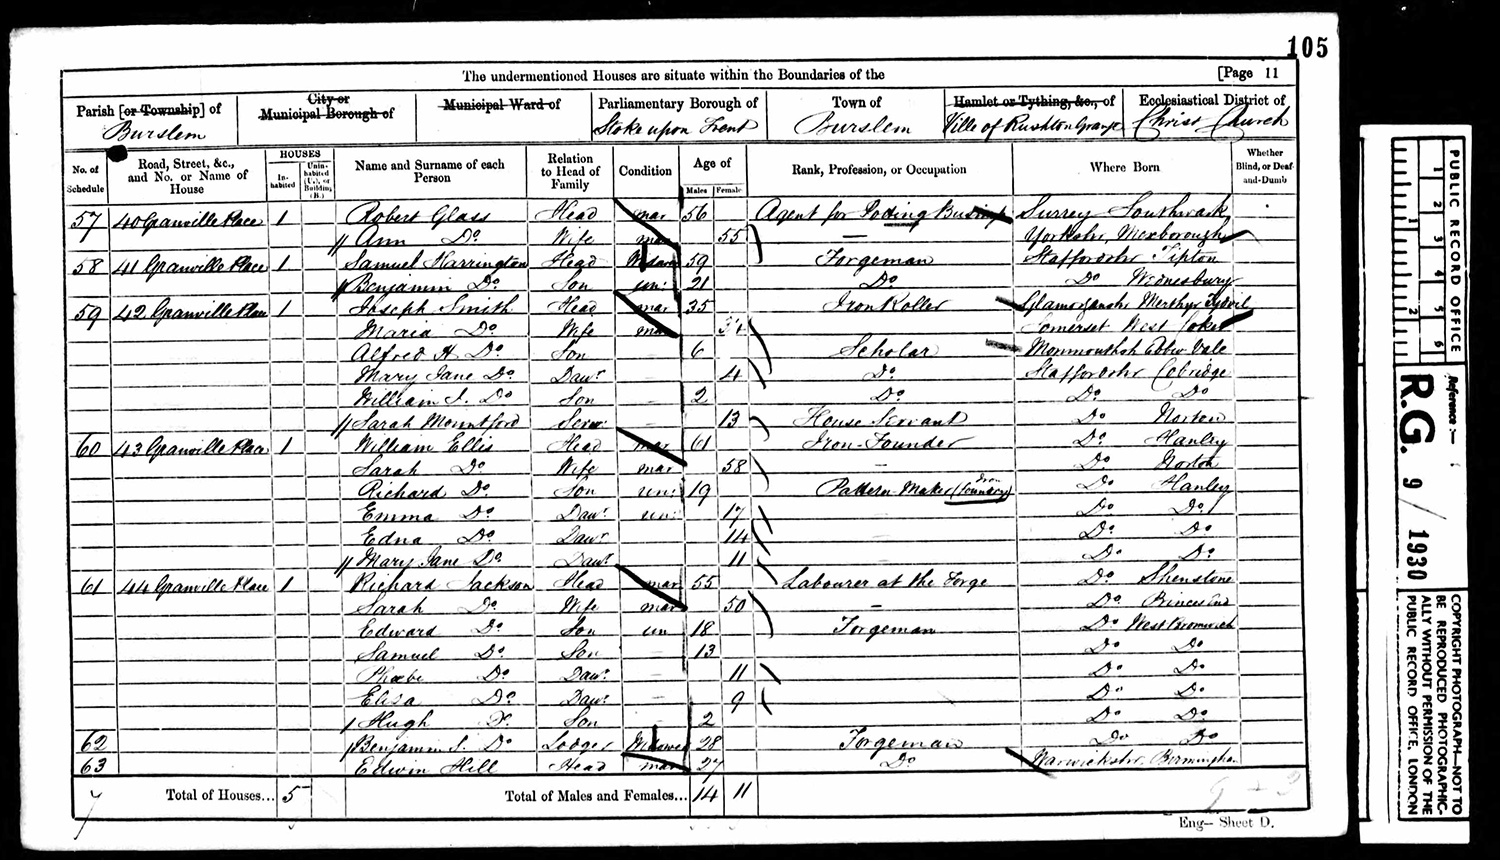 105
The undermentioned Houses are situate within the Boundaries of the [Page 11
Parish [or Township] of Burslem
City or Municipal Borough of
Municipal Ward of
Parliamentary Borough of Stoke upon Trent
Town of Burslem
Hamlet or Tything, &c., of Ville of Rushton Grange
Ecclesiastical District of Christ Church
No. of Schedule
Road, Street, &c., and No. or Name of House
HOUSES
Inhabited
Uninhabited (U.), or Building (B.)
Name and Surname of each Person
Relation to Head of Family
Condition
Age of
Males Females
Rank, Profession, or Occupation
Where Born
Whether Blind, or Deaf-and-Dumb
57 40 Granville Place 1 Robert Glass Head mar 56 Agent for Surrey Southwark
Ann Do Wife mar 55 — Yorkshr, Mexborough
58 41 Granville Place 1 Samuel Harrington Head Widower 59 Forgeman Staffordshr Tipton
Benjamin Do Son un: 21 Do Do Wednesbury
59 42 Granville Place 1 Joseph Smith Head mar 35 Iron Roller Glamorganshr Merthyr Tydvil
Maria Do Wife mar Somerset West Coker
Alfred H. Do Son — 6 Scholar Monmouthsh Ebbw Vale
Mary Jane Do Dawr — 4 Do Staffordshr Cobridge
William J. Do Son — 2 Do Do Do
Sarah Mountford Serw: — 13 House Servant Do Norton
60 43 Granville Place 1 William Ellis Head mar 61 Iron-Founder Do Hanley
Sarah Do Wife mar 58 — Do Norton
Richard Do Son un: 19 Pattern Maker (Iron Foundry) Do Hanley
Emma Do Dawr un: 17 Do Do
Edna Do Dawr 14 — Do Do
Mary Jane Do Dawr 11 — Do Do
61 44 Granville Place 1 Richard Jackson Head mar 55 Labourer at the Forge Do Shenstone
Sarah Do Wife mar 50 — Do Princes End
Edward Do Son un 18 Forgeman Do West Bromwich
Samuel Do Son — 13 Do Do
Phœbe Do Dawr — 11 Do Do
Eliza Do Dawr — 9 Do Do
Hugh Do Son — 2 Do Do
62 Benjamin J. Do Lodger Widower 28 Forgeman Do Do
63 Edwin Hill Head mar 27 Do Warwickshr Birmingham
Total of Houses... 5 Total of Males and Females... 14 11
Eng— Sheet D.
PUBLIC RECORD OFFICE
1 2 3 4 5 6
1 2
Reference:-
R.G. 9/1930
COPYRIGHT PHOTOGRAPH—NOT TO BE REPRODUCED PHOTOGRAPHICALLY WITHOUT PERMISSION OF THE PUBLIC RECORD OFFICE, LONDON